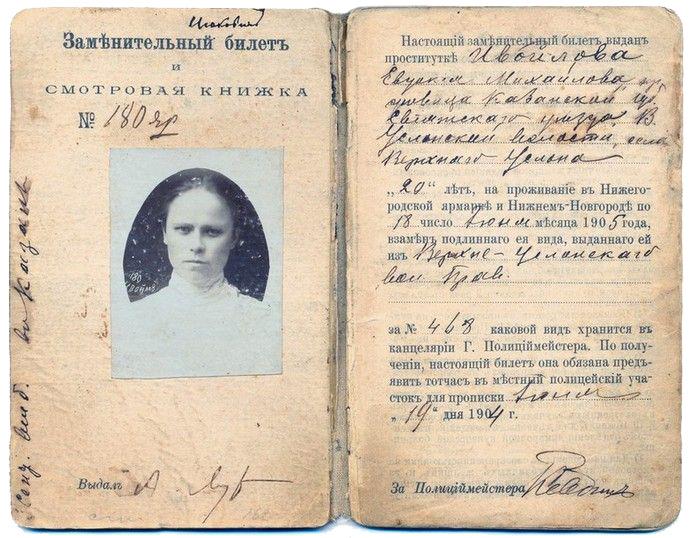 Замѣнительный билетъ
и
СМОТРОВАЯ КНИЖКА
№ 180 яр
180
Выдалъ
Настоящій замѣнительный билетъ выданъ
проституткѣ Ивойлова
Евдокия Михайлова, кр
Казанской губ.
Свіяжскаго уѣзда, В.
Услонской волости, села
Верхняго Услона
„20“ лѣтъ, на проживаніе въ Нижего-
родской ярмаркѣ и Нижнемъ-Новгородѣ по
18 число мѣсяца 1905 года,
взамѣнъ подлиннаго ея вида, выданнаго ей
изъ Верхне-Услонскаго
вол. Прав.
за № 468 каковой видъ хранится въ
канцеляріи Г. Полиціймейстера. По полу-
ченіи, настоящій билетъ она обязана предъ-
явить тотчасъ въ мѣстный полицейскій уча-
стокъ для прописки
„19“ дня 1904 г.
За Полиціймейстера
въ Казань